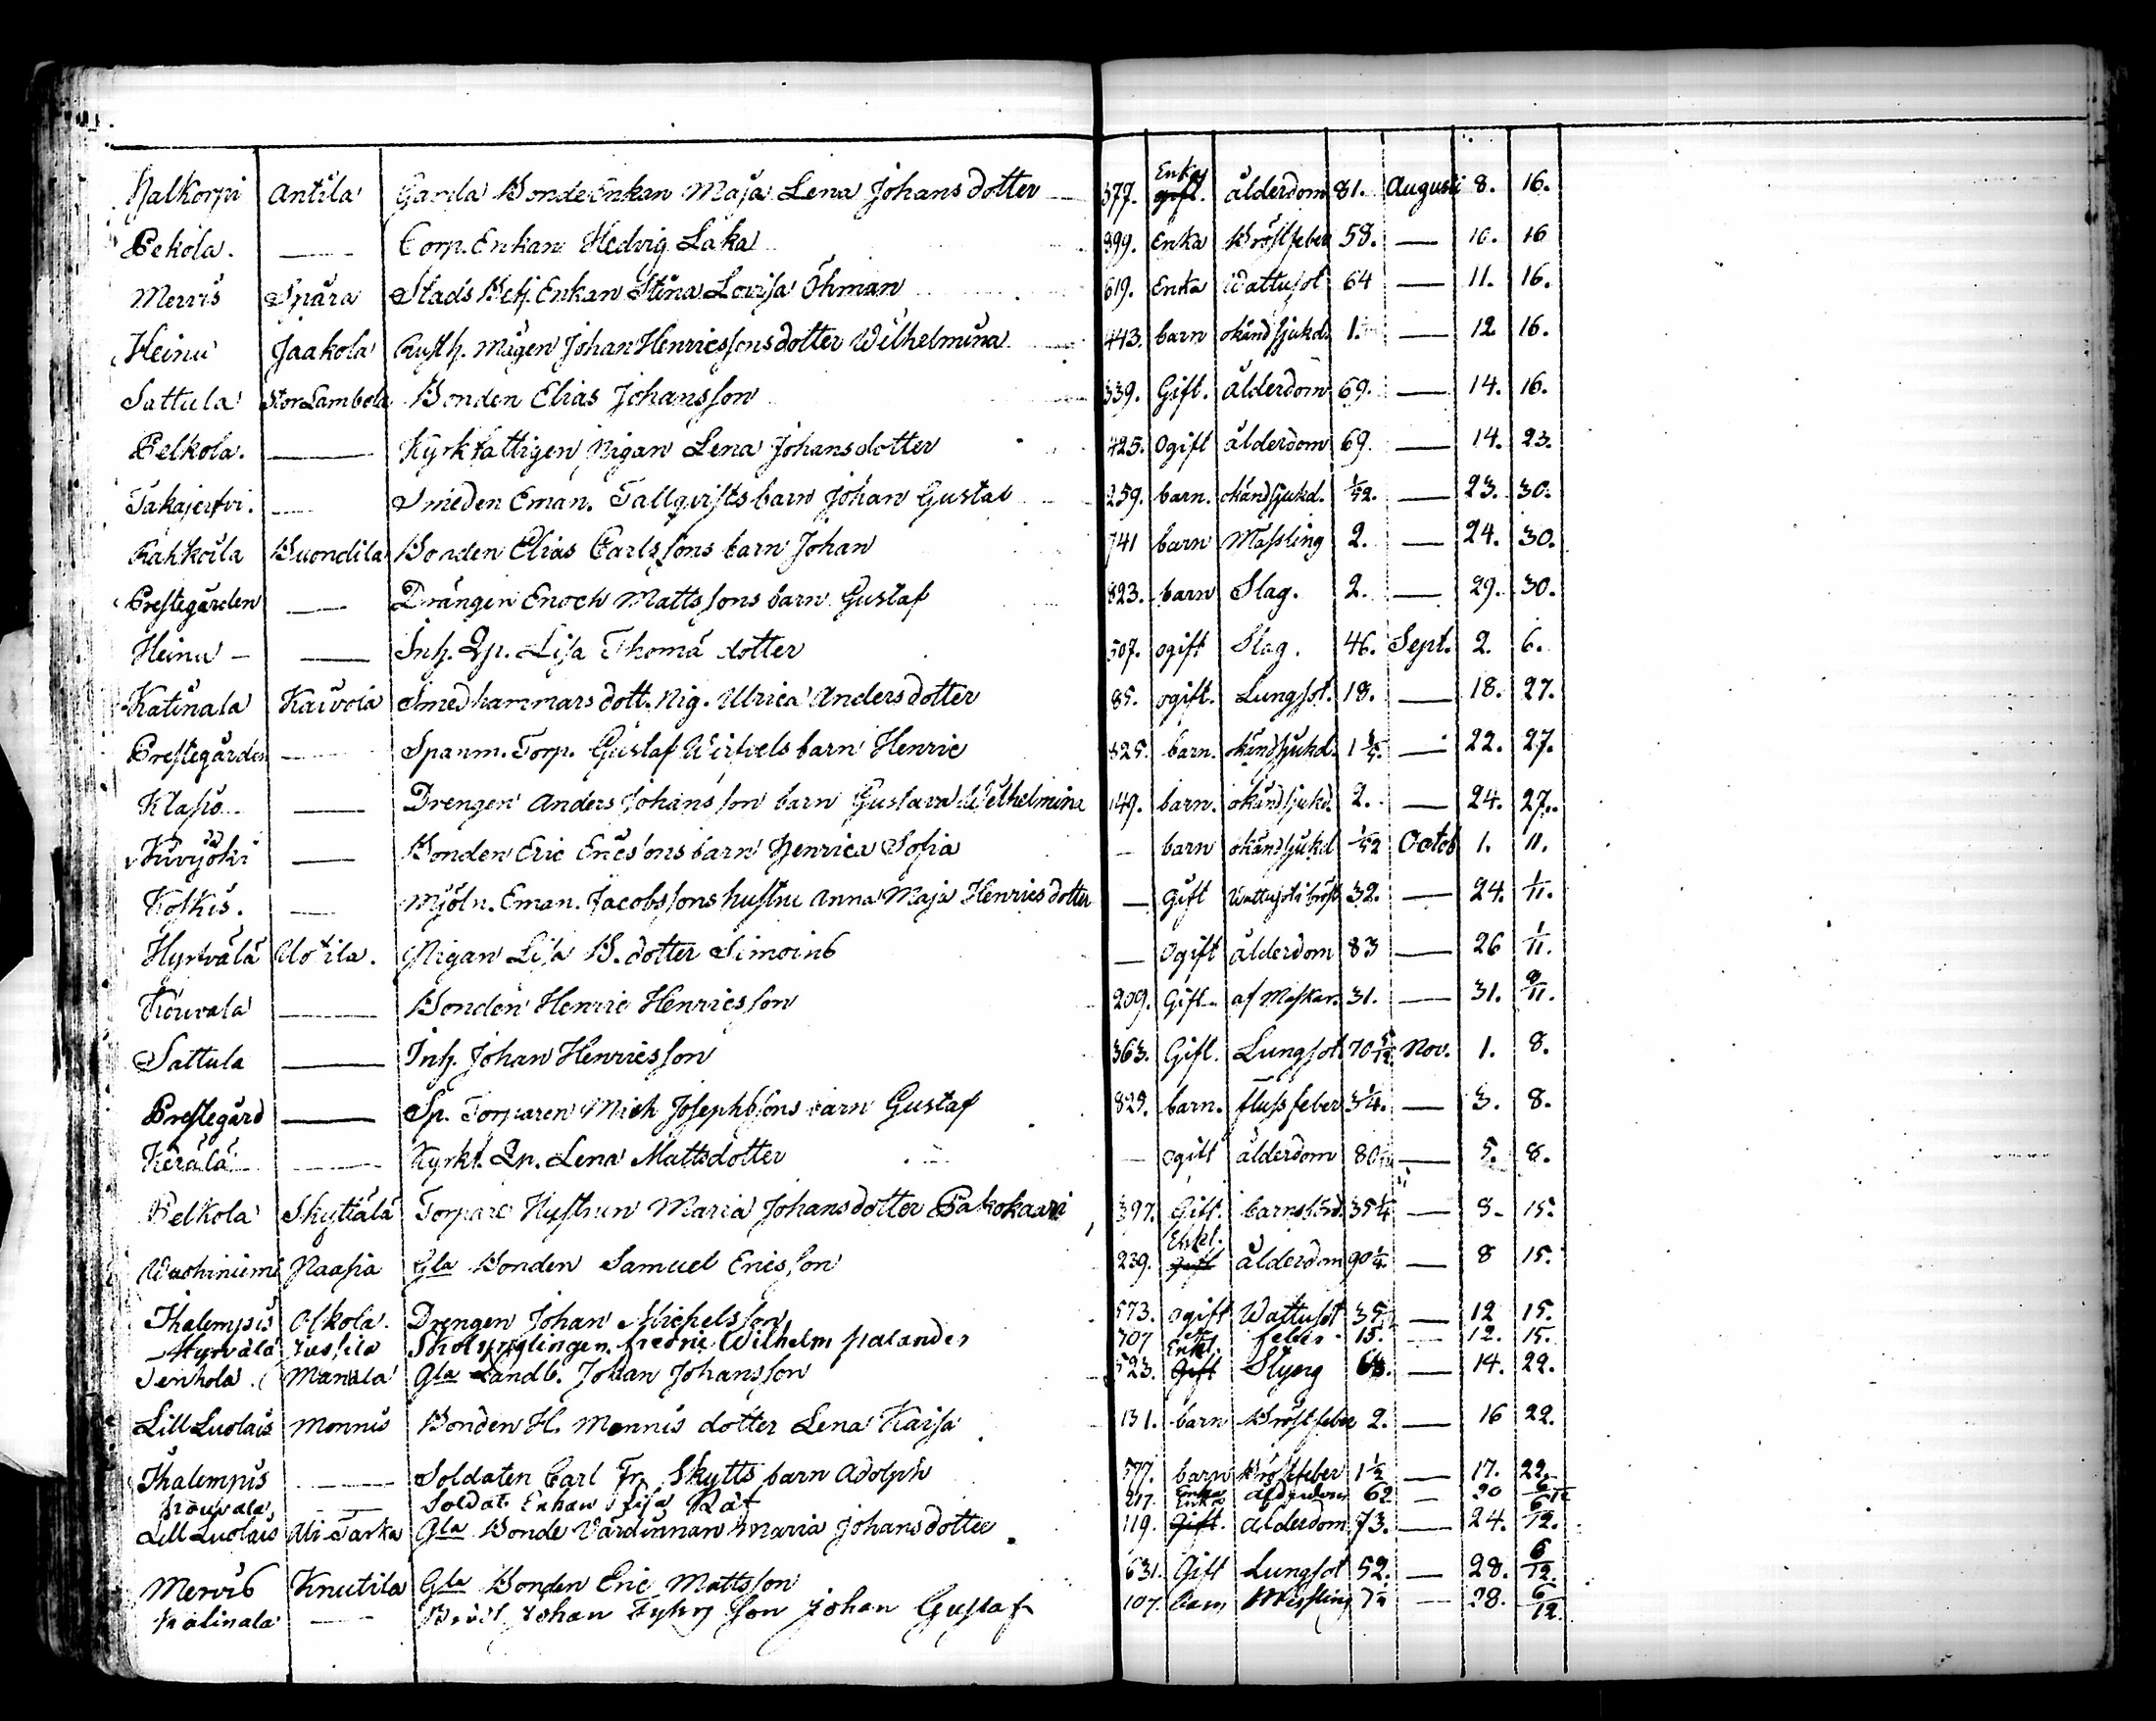 Nalkorpi Antila Gamla BondeEnkan Maja Lena Johans dotter 377. Enka gift. ålderdom 81. Augusti 8. 16.
Pekola. — Torp. Enkan Hedvig Laka 399. Enka Bröstfeber 58. — 10. 16
Mervis Spära Stads Betj. Enkan Stina Lovisa Öhman 619. Enka Wattusot 64 — 11. 16.
Heinu Jaakola Rusth. Mågen Johan Henricssons dotter Wilhelmina 443. barn okänd sjukd. 1. — 12 16.
Sattula Stor Lambola Bonden Elias Johansson 339. Gift. ålderdom 69. — 14. 16.
Pelkola. — Kyrkfattigen Pigan Lena Johansdotter 425. Ogift ålderdom 69. — 14. 23.
Takajerfvi. — Smeden Eman. Tallqvists barn Johan Gustaf 259. barn. okänd sjukd. 1/52. — 23. 30.
Rahkoila Buondila Bonden Elias Carlssons barn Johan 741 barn Massling 2. — 24. 30.
Prestegården — Drängen Enoch Mattssons barn Gustaf 823. barn Slag. 2. — 29. 30.
Heinu — — Inh. Qp. Lisa Thomä dotter 507. ogift Slag. 46. Sept. 2. 6.
Katinala Kaivola Smedhammars dott. Pig. Ulrica Anders dotter 85. ogift. Lungsot. 18. — 18. 27.
Prestegården — Spanm. Torp. Gustaf Wirfvels barn Henric 825. barn. okänd sjukd. 1 — 22. 27.
Klapis — Drengen Anders Johansson barn Gustava Wilhelmina 149. barn. okänd sjukd. 2. — 24. 27.
Kivijöki — Bonden Eric Ericsons barn Henrica Sofia — barn okänd sjukd 1/52 Octob 1. 11.
Koskis. — Mjöln. Eman. Jacobssons hustru Anna Maja Henricsdotter — Gift Wattusot i bröst 32. — 24. 1/11.
Hyrvälä Uotila. Pigan Lisa B. dotter Simoins — Ogift ålderdom 83 — 26 1/11.
Kouvala — Bonden Henric Henricsson 209. Gift af Maskar. 31. — 31. 8/11.
Sattula — Inh. Johan Henricsson 363. Gift. Lungsot 70 5/12 Nov. 1. 8.
Prestegård — Sp. Torparen Mich Josephssons barn Gustaf 829. barn. flussfeber 3/4. — 3. 8.
Kerälä — Kyrkf. Qp. Lena Mattsdotter — ogift ålderdom 80 — 5. 8.
Pelkola Skyttälä Torpare Hustrun Maria Johansdotter Pakokaari 397. Gift. barnsbörd. 35 1/4 — 8. 15.
Wuohiniemi Naapia Gla Bonden Samuel Ericsson 239. Enkl. Gift ålderdom 90 1/4. — 8 15.
Thalempis Olkola. Drengen Johan Michelsson 573. ogift Wattusot 35 — 12 15.
Hyrvälä Jussila Skolynglingen Fredric Wilhelm Palander 707 feber 15. — 12. 15.
Tenhola Manula Gla Landb. Johan Johansson 523. Enkl. Gift Styng 64. — 14. 22.
Lill Luolais Monnis Bonden H. Monnis dotter Lena Kaisa 131. barn Bröstfeber 2. — 16 22.
Thalempis — Soldaten Carl Fr. Skytts barn Adolph 577. barn Bröstfeber 1 1/2 — 17. 22.
Kouvala — Soldat. Enkan Lisa Rät 217. Enka ålderdom 62 — 20 6/12
Lill Luolais Ali Tarka Gla Bonde Värdinnan Maria Johansdotter 119. Enka Gift. ålderdom 73. — 24. 6/12.
Mervis Knutila Gla Bonden Eric Mattsson 631. Gift Lungsot 52. — 28. 6/12.
Katinala — Johan Fyhrs Son Johan Gustaf 107. Barn Messling 7 1/2 — 28. 6/12.